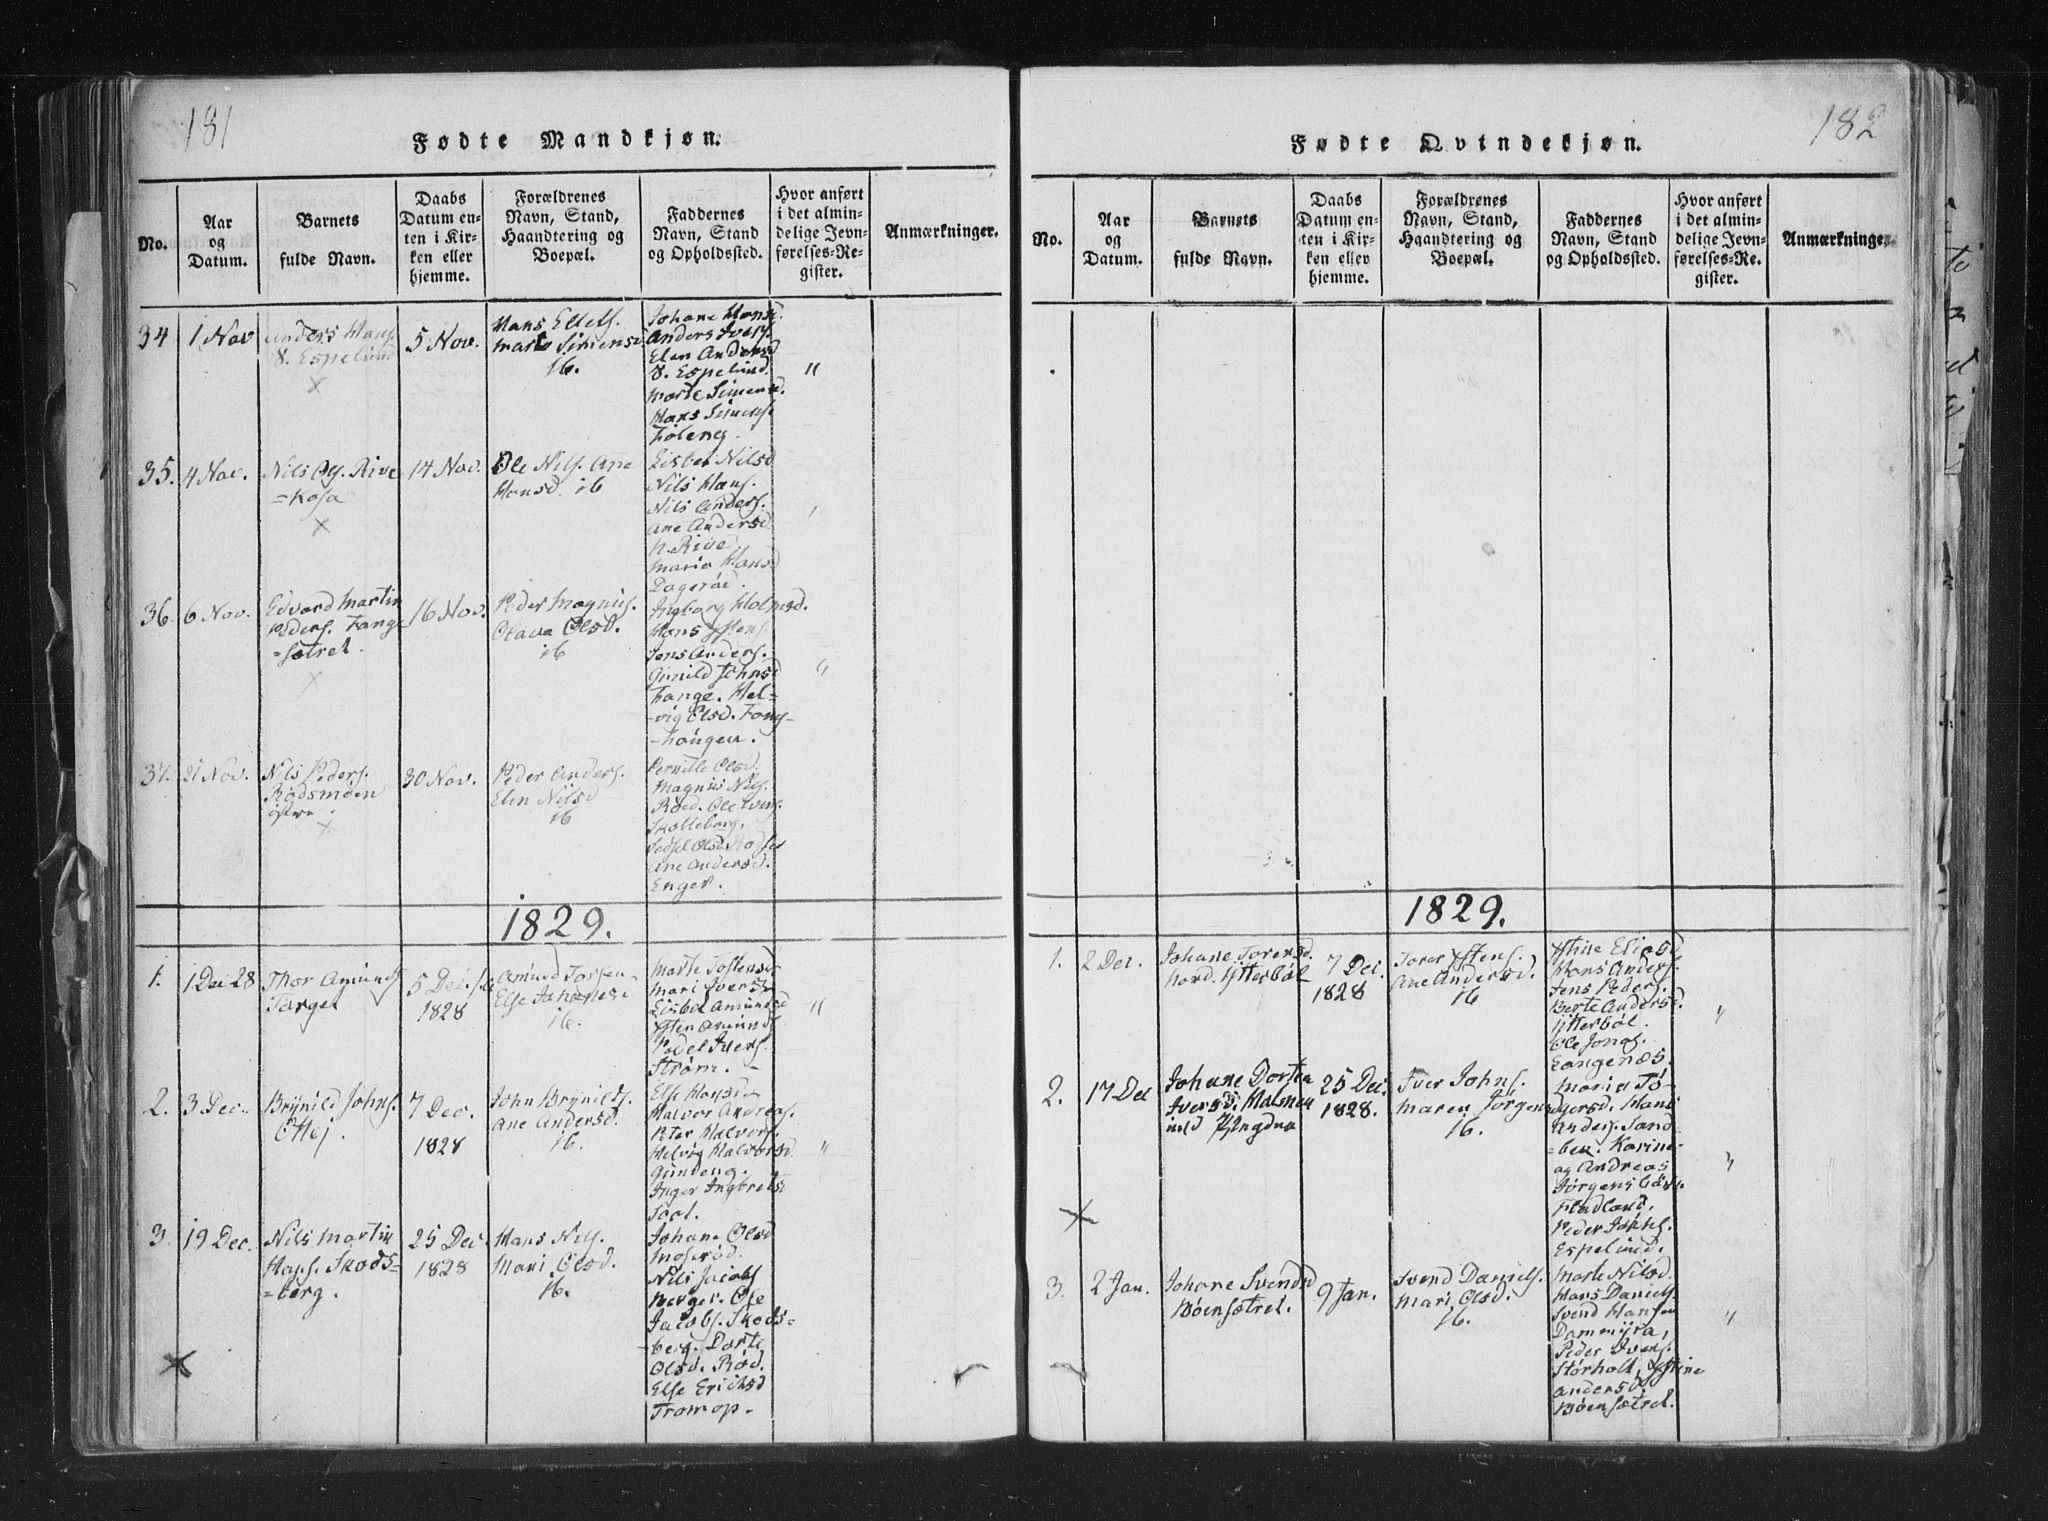 181
Fødte Mandkjøn.
No.
Aar
og
Datum.
Barnets
fulde Navn.
Daabs
Datum en-
ten i Kir-
ken eller
hjemme.
Forældrenes
Navn, Stand,
Haandtering og
Boepæl.
Faddernes
Navn, Stand
og Opholdssted.
Hvor anført
i det almin-
delige Jevn-
førelses-Re-
gister.
Anmærkninger.
34
1 Nov
Anders Hans.
V. Espelund
5 Nov.
Hans Ellefs.
Marte Simensd
ib.
Johane Hansd.
Anders Ivers.
Elen Andersd
V. Espelund.
Marte Simensd.
Hans Simens.
Foleng.
"
35.
4 Nov.
Nils Ols. Rive
=kasa
14 Nov.
Ole Nils. Ane
Hansd. ib
Lisbet Nilsd
Nils Hans.
Nils Anders.
Ane Andersd.
N. Rive.
Maria Hansd
Dagerød.
36.
6 Nov.
Edvard Martin
Peders. Fange
=sætret.
16 Nov.
Peder Magnus.
Olava Olsd.
ib
Ingborg Halvosd.
Hans Ystens.
Jens Anders.
Gunild Johnsd
Fange. Hel-
-vig Olsd. Fang-
-haugen.
"
37.
21 Nov.
Nils Peders.
Rødsmoen
østre
30 Nov.
Peder Anders.
Elen Nilsd
ib
Pernille Olsd.
Magnus Nils.
Røed. Ole Ivers.
Skotteborg.
Sidsel Olsd.
Ane Andersd.
Enger.
1829.
1.
1 Dec 28
Thor Amunds
Torget
5 Dec.
1828
Amund Torsen
Else Johannesd
ib.
Marte Tostensd
Mari Iversd
Lisbet Amundsd
Ysten Amunds
Padel Ivers.
Strøm.
"
2.
3 Dec.
Brynild Johns.
Ottej.
7 Dec.
1828
John Brynilds.
Ane Andersd.
ib.
Else Hansd.
Halvor Andreas.
Peter Halvors.
Helvig Halvorsd.
Gundeng.
Inger Ingbretsd
Saat.
"
3.
19 Dec.
Nils Martin
Hans. Skods=
=berg.
25 Dec.
1828
Hans Nils.
Mari Olsd.
ib.
Johane Olsd
Moserød.
Nils Jacobs
Berger. Ole
Jacobs. Skods=
-berg. Dorte
Olsd. Rød.
Else Erichsd
Tromop.
182
Fødte Qvindekjøn.
No.
Aar
og
Datum.
Barnets
fulde Navn.
Daabs
Datum en-
ten i Kir-
ken eller
hjemme.
Forældrenes
Navn, Stand,
Haandtering og
Boepæl.
Faddernes
Navn, Stand
og Opholdssted.
Hvor anført
i det almin-
delige Jevn-
førelses-Re-
gister.
Anmærkninger.
1829.
1.
2 Dec.
Johane Torersd.
Nord. Ytterbøl
7 Dec.
1828
Torer Ystens.
Ane Andersd.
ib
Ystine Eliasd
Hans Anders.
Jens Peders.
Berte Andersd.
Ytterbøl.
Ole Jonas.
Langenæs.
"
2.
17 Dec
Johane Dortea
Iversd.
25 Dec.
1828.
Iver Johns.
Maren Jørgens
ib.
Maria Tø-
-gersd. Hans
Anders. Sand-
=ben. Karine
og Andreas
Jørgens børn
Fladland.
Peder Johns.
Espelund.
"
3.
2 Jan.
Johane Svendsd
Bøensætret.
9 Jan.
Svend Daniels.
Mari Olsd.
ib.
Marte Nilsd.
Hans Daniels
Svend Hansen
Dammyra,
Peder Ivers.
Storholt, Ystine
Andersd
Bøensætret.
"